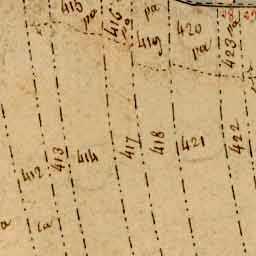 415
pa
416
pa
419
pa
420
pa
423
pa
412
413
414
417
418
421
422
a
ca